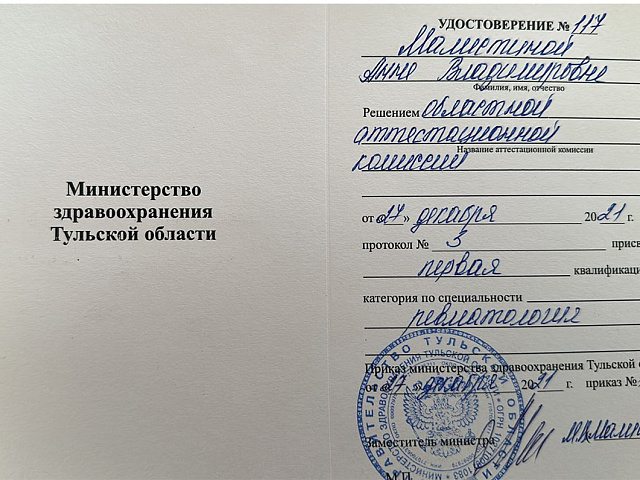 Министерство
здравоохранения
Тульской области
УДОСТОВЕРЕНИЕ № 117
Малистиной
Анне Владимировне
Фамилия, имя, отчество
Решением областной
аттестационной
Название аттестационной комиссии
комиссии
от «27» декабря 2021 г.
протокол № 3 присв
первая квалификаци
категория по специальности
ревматология
Приказ министерства здравоохранения Тульской о
от «27» декабря 2021 г. приказ №
Заместитель министра
М.П.